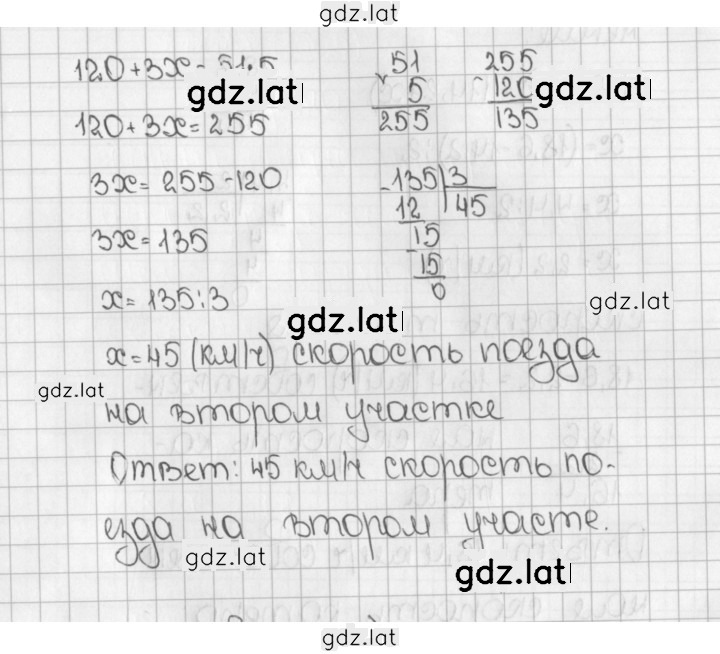 gdz.lat
120+3x=51·5
gdz.lat
120+3x=255
3x=255-120
3x=135
x=135:3
51
× 5
255
255
- 120
135
gdz.lat
-135|3
12 |45
15
15
0
gdz.lat
gdz.lat
x=45 (км/ч) скорость поезда
gdz.lat
на втором участке
Ответ: 45 км/ч скорость по-
езда на втором участе.
gdz.lat
gdz.lat
gdz.lat